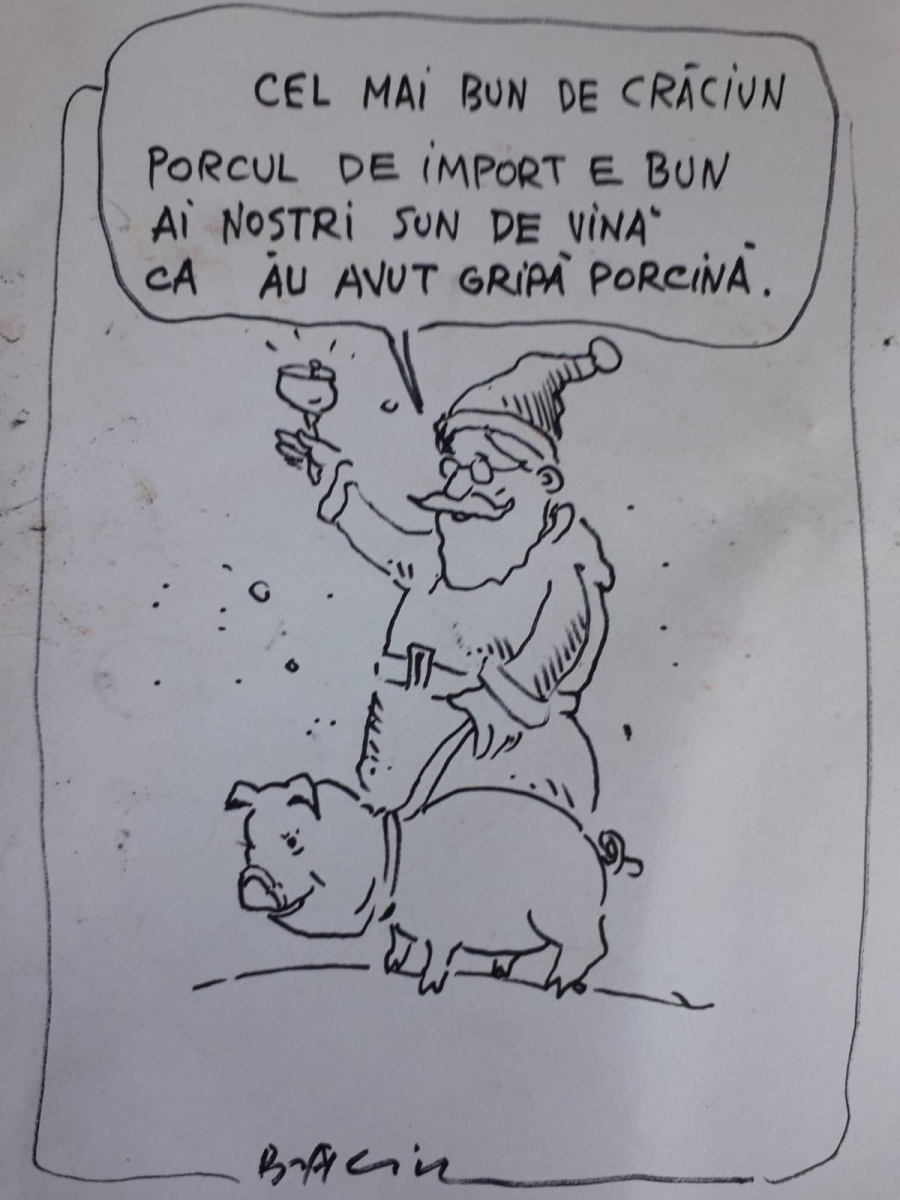 CEL MAi BUN DE CRĂCiUN
PORCUL DE iMPORT E BUN
Ai NOSTRi SUN DE ViNĂ
CA AU AVUT GRiPĂ PORCiNĂ.